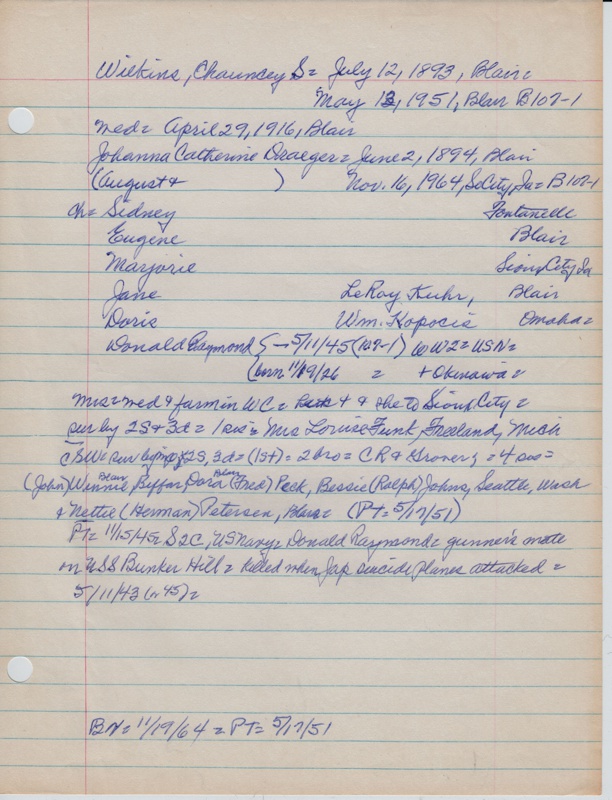 Wilkins, Chauncey S = July 12, 1893, Blair =
May 13, 1951, Blair B107-1
med = April 29, 1916, Blair
Johanna Catherine Draeger = June 2, 1894, Blair
(August & ) Nov. 16, 1964, So City, Ia = B107-1
ch = Sidney Fontanelle
Eugene Blair
Marjorie Sioux City Ia
Jane LeRoy Kuhr, Blair
Doris Wm. Kopocis Omaha =
Donald Raymond 5/11/45 (107-1) WW2 = USN =
(born 11/19/26 = + Okinawa =
Mrs = med & farm in WC = & she to Sioux City =
sur by 2S & 3d = 1 sis = Mrs Louise Funk, Freeland, Mich
CSW = sur by 2S, 3d = (1st) = 2 bros = CR & Grover; = 4 sis =
(John) Winnie Blair, Dora (Fred) Peck, Blair, Bessie (Ralph) Johns, Seattle, Wash
& Nettie (Herman) Petersen, Blair = (PT = 5/17/51)
PT = 11/15/45 = S2C, US Navy = Donald Raymond = gunner's mate
on USS Bunker Hill = killed when Jap suicide planes attacked =
5/11/43 (or 45) =
BN = 11/19/64 = PT = 5/17/51